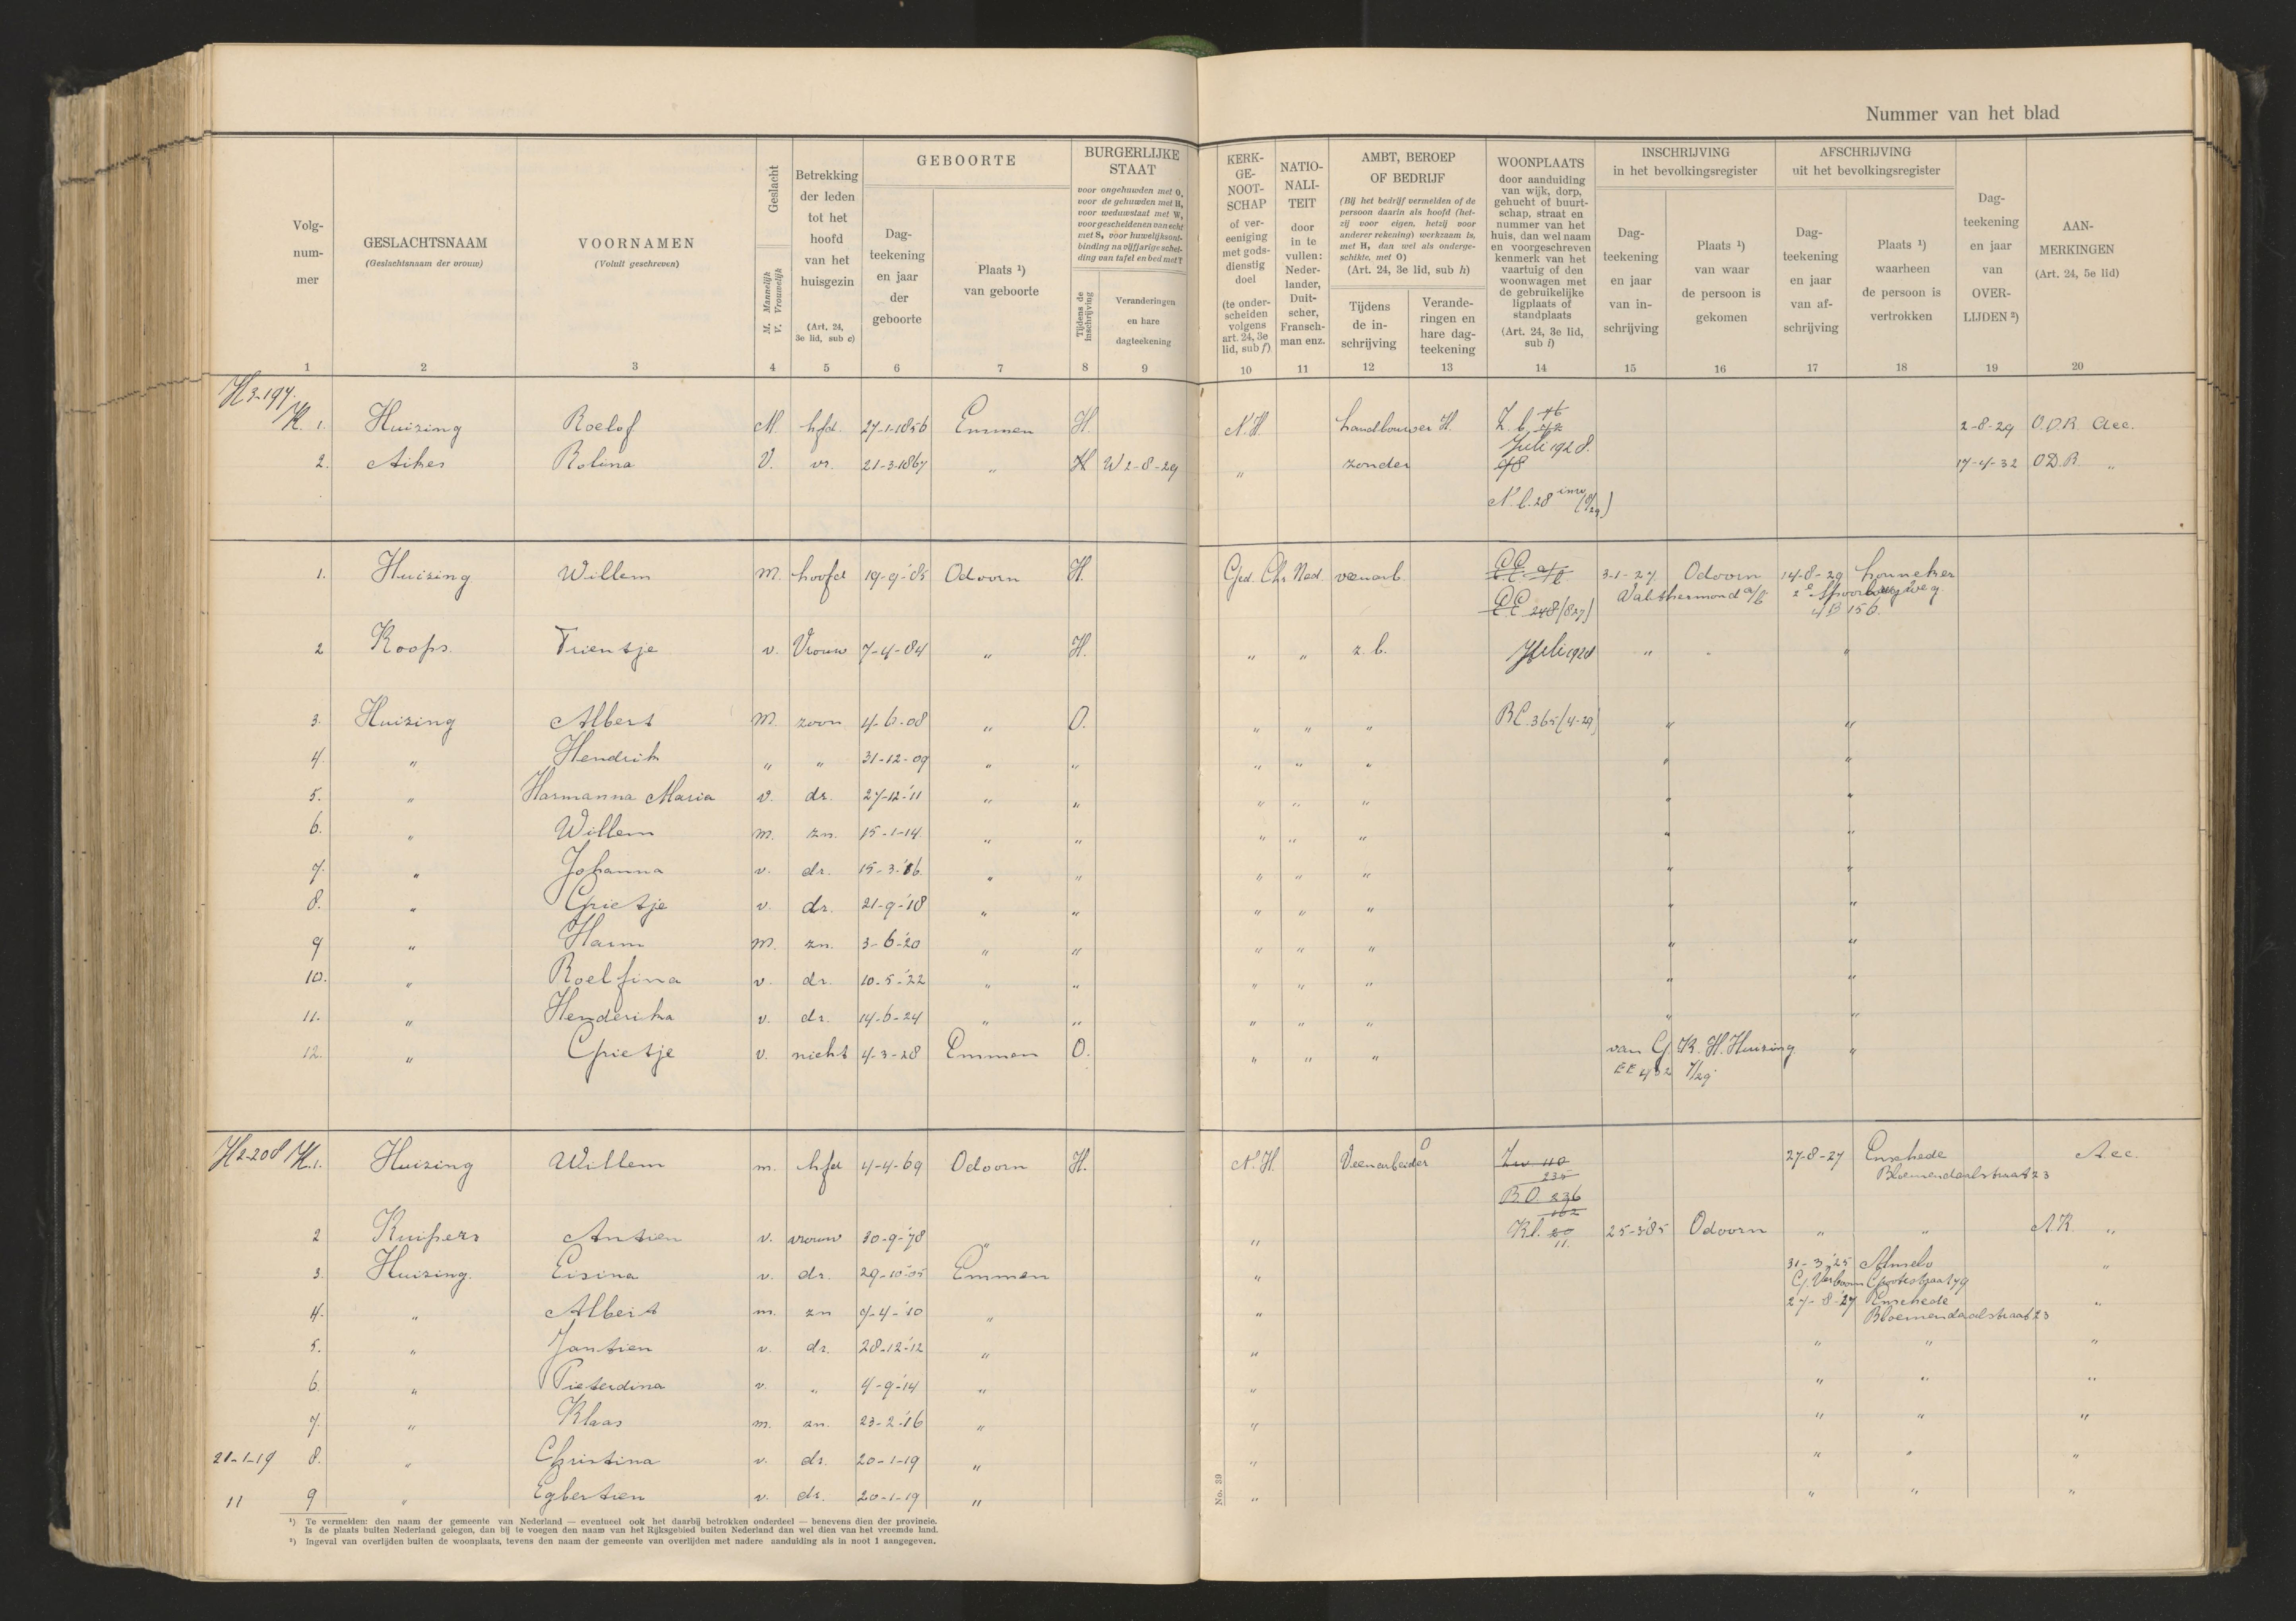 Nummer van het blad
Volg-
num-
mer
GESLACHTSNAAM
(Geslachtsnaam der vrouw)
VOORNAMEN
(Voluit geschreven)
Geslacht
M. Mannelijk
V. Vrouwelijk
Betrekking
der leden
tot het
hoofd
van het
huisgezin
(Art. 24,
3e lid, sub c)
GEBOORTE
Dag-
teekening
en jaar
der
geboorte
Plaats ¹)
van geboorte
BURGERLIJKE
STAAT
voor ongehuwden met O,
voor de gehuwden met H,
voor weduwstaat met W,
voor gescheidenen van echt
met S, voor huwelijksont-
binding na vijfjarige schei-
ding van tafel en bed met T
Tijdens de
inschrijving
Veranderingen
en hare
dagteekening
KERK-
GE-
NOOT-
SCHAP
of ver-
eeniging
met gods-
dienstig
doel
(te onder-
scheiden
volgens
art. 24, 3e
lid, sub f)
NATIO-
NALI-
TEIT
door
in te
vullen:
Neder-
lander,
Duit-
scher,
Fransch-
man enz.
AMBT, BEROEP
OF BEDRIJF
(Bij het bedrijf vermelden of de
persoon daarin als hoofd (het-
zij voor eigen, hetzij voor
anderer rekening) werkzaam is,
met H, dan wel als onderge-
schikte, met O)
(Art. 24, 3e lid, sub h)
Tijdens
de in-
schrijving
Verande-
ringen en
hare dag-
teekening
WOONPLAATS
door aanduiding
van wijk, dorp,
gehucht of buurt-
schap, straat en
nummer van het
huis, dan wel naam
en voorgeschreven
kenmerk van het
vaartuig of den
woonwagen met
de gebruikelijke
ligplaats of
standplaats
(Art. 24, 3e lid,
sub i)
INSCHRIJVING
in het bevolkingsregister
Dag-
teekening
en jaar
van in-
schrijving
Plaats ¹)
van waar
de persoon is
gekomen
AFSCHRIJVING
uit het bevolkingsregister
Dag-
teekening
en jaar
van af-
schrijving
Plaats ¹)
waarheen
de persoon is
vertrokken
Dag-
teekening
en jaar
van
OVER-
LIJDEN ²)
AAN-
MERKINGEN
(Art. 24, 5e lid)
1 2 3 4 5 6 7 8 9 10 11 12 13 14 15 16 17 18 19 20
H3-197.
K. 1. Huizing Roelof M. hfd. 27-1-1856 Emmen H. N.H. landbouwer H. 2-8-29 O.D.R. Acc.
Juli 1928.
2. Aikes Rolina V. vr. 21-3-1867 " H W 2-8-29 " zonder 48 17-4-32 O.D.R. "
N.l. 28 inw
1. Huizing Willem m. hoofd 19-9-'85 Odoorn H. Ged. Chr. Ned. veenarb. 3-1-27 Odoorn 14-8-29 Lonneker
Valthermond 2e Spoordwarsweg
EE 248 (8 27) 4B 156.
2 Koops Trientje v. Vrouw 7-4-84 " H. " " z.b. Juli 1928 " " "
3. Huizing Albert m. zoon 4-6-08 " O. " " " BC. 365 (4-29) " "
4. " Hendrik " " 31-12-09 " " " " " " "
5. " Harmanna Maria v. dr. 27-12-'11 " " " " " " "
6. " Willem m. zn. 15-1-14 " " " " " " "
7. " Johanna v. dr. 15-3-'16 " " " " " " "
8. " Grietje v. dr. 21-9-'18 " " " " " " "
9 " Harm m. zn. 3-6-'20 " " " " " " "
10. " Roelfina v. dr. 10-5-'22 " " " " " " "
11. " Henderika v. dr. 14-6-24 " " " " " " "
12. " Grietje v. nicht 4-3-28 Emmen O. " " " van G.K. H. Huizing "
EE 432 7/29
H2-208 K.1. Huizing Willem m. hfd 4-4-69 Odoorn H. N.H. Veenarbeider O Zw 110 27-8-27 Enschede Acc.
235 Bloemendaalstraat 23
BO. 236
162
2 Kuipers Antien v. vrouw 30-9-'78 " " Kl. 20 25-3-'85 Odoorn " " N.K. "
11.
3. Huizing. Eisina v. dr. 29-10-'05 Emmen " 31-3-'25 Almelo "
G. Verboom Grootestraat 79
4. " Albert m. zn 7-4-'10 " " 27-8-'27 Enschede "
Bloemendaalstraat 23
5. " Jantien v. dr. 28-12-'12 " " " " "
6. " Pieterdina v. " 4-9-'14 " " " " "
7. " Klaas m. zn. 23-2-'16 " " " " "
21-1-19 8. " Christina v. dr. 20-1-19 " " " " "
" 9 " Egbertien v. dr. 20-1-19 " " " " "
No. 39
¹) Te vermelden: den naam der gemeente van Nederland — eventueel ook het daarbij betrokken onderdeel — benevens dien der provincie.
Is de plaats buiten Nederland gelegen, dan bij te voegen den naam van het Rijksgebied buiten Nederland dan wel dien van het vreemde land.
²) Ingeval van overlijden buiten de woonplaats, tevens den naam der gemeente van overlijden met nadere aanduiding als in noot 1 aangegeven.